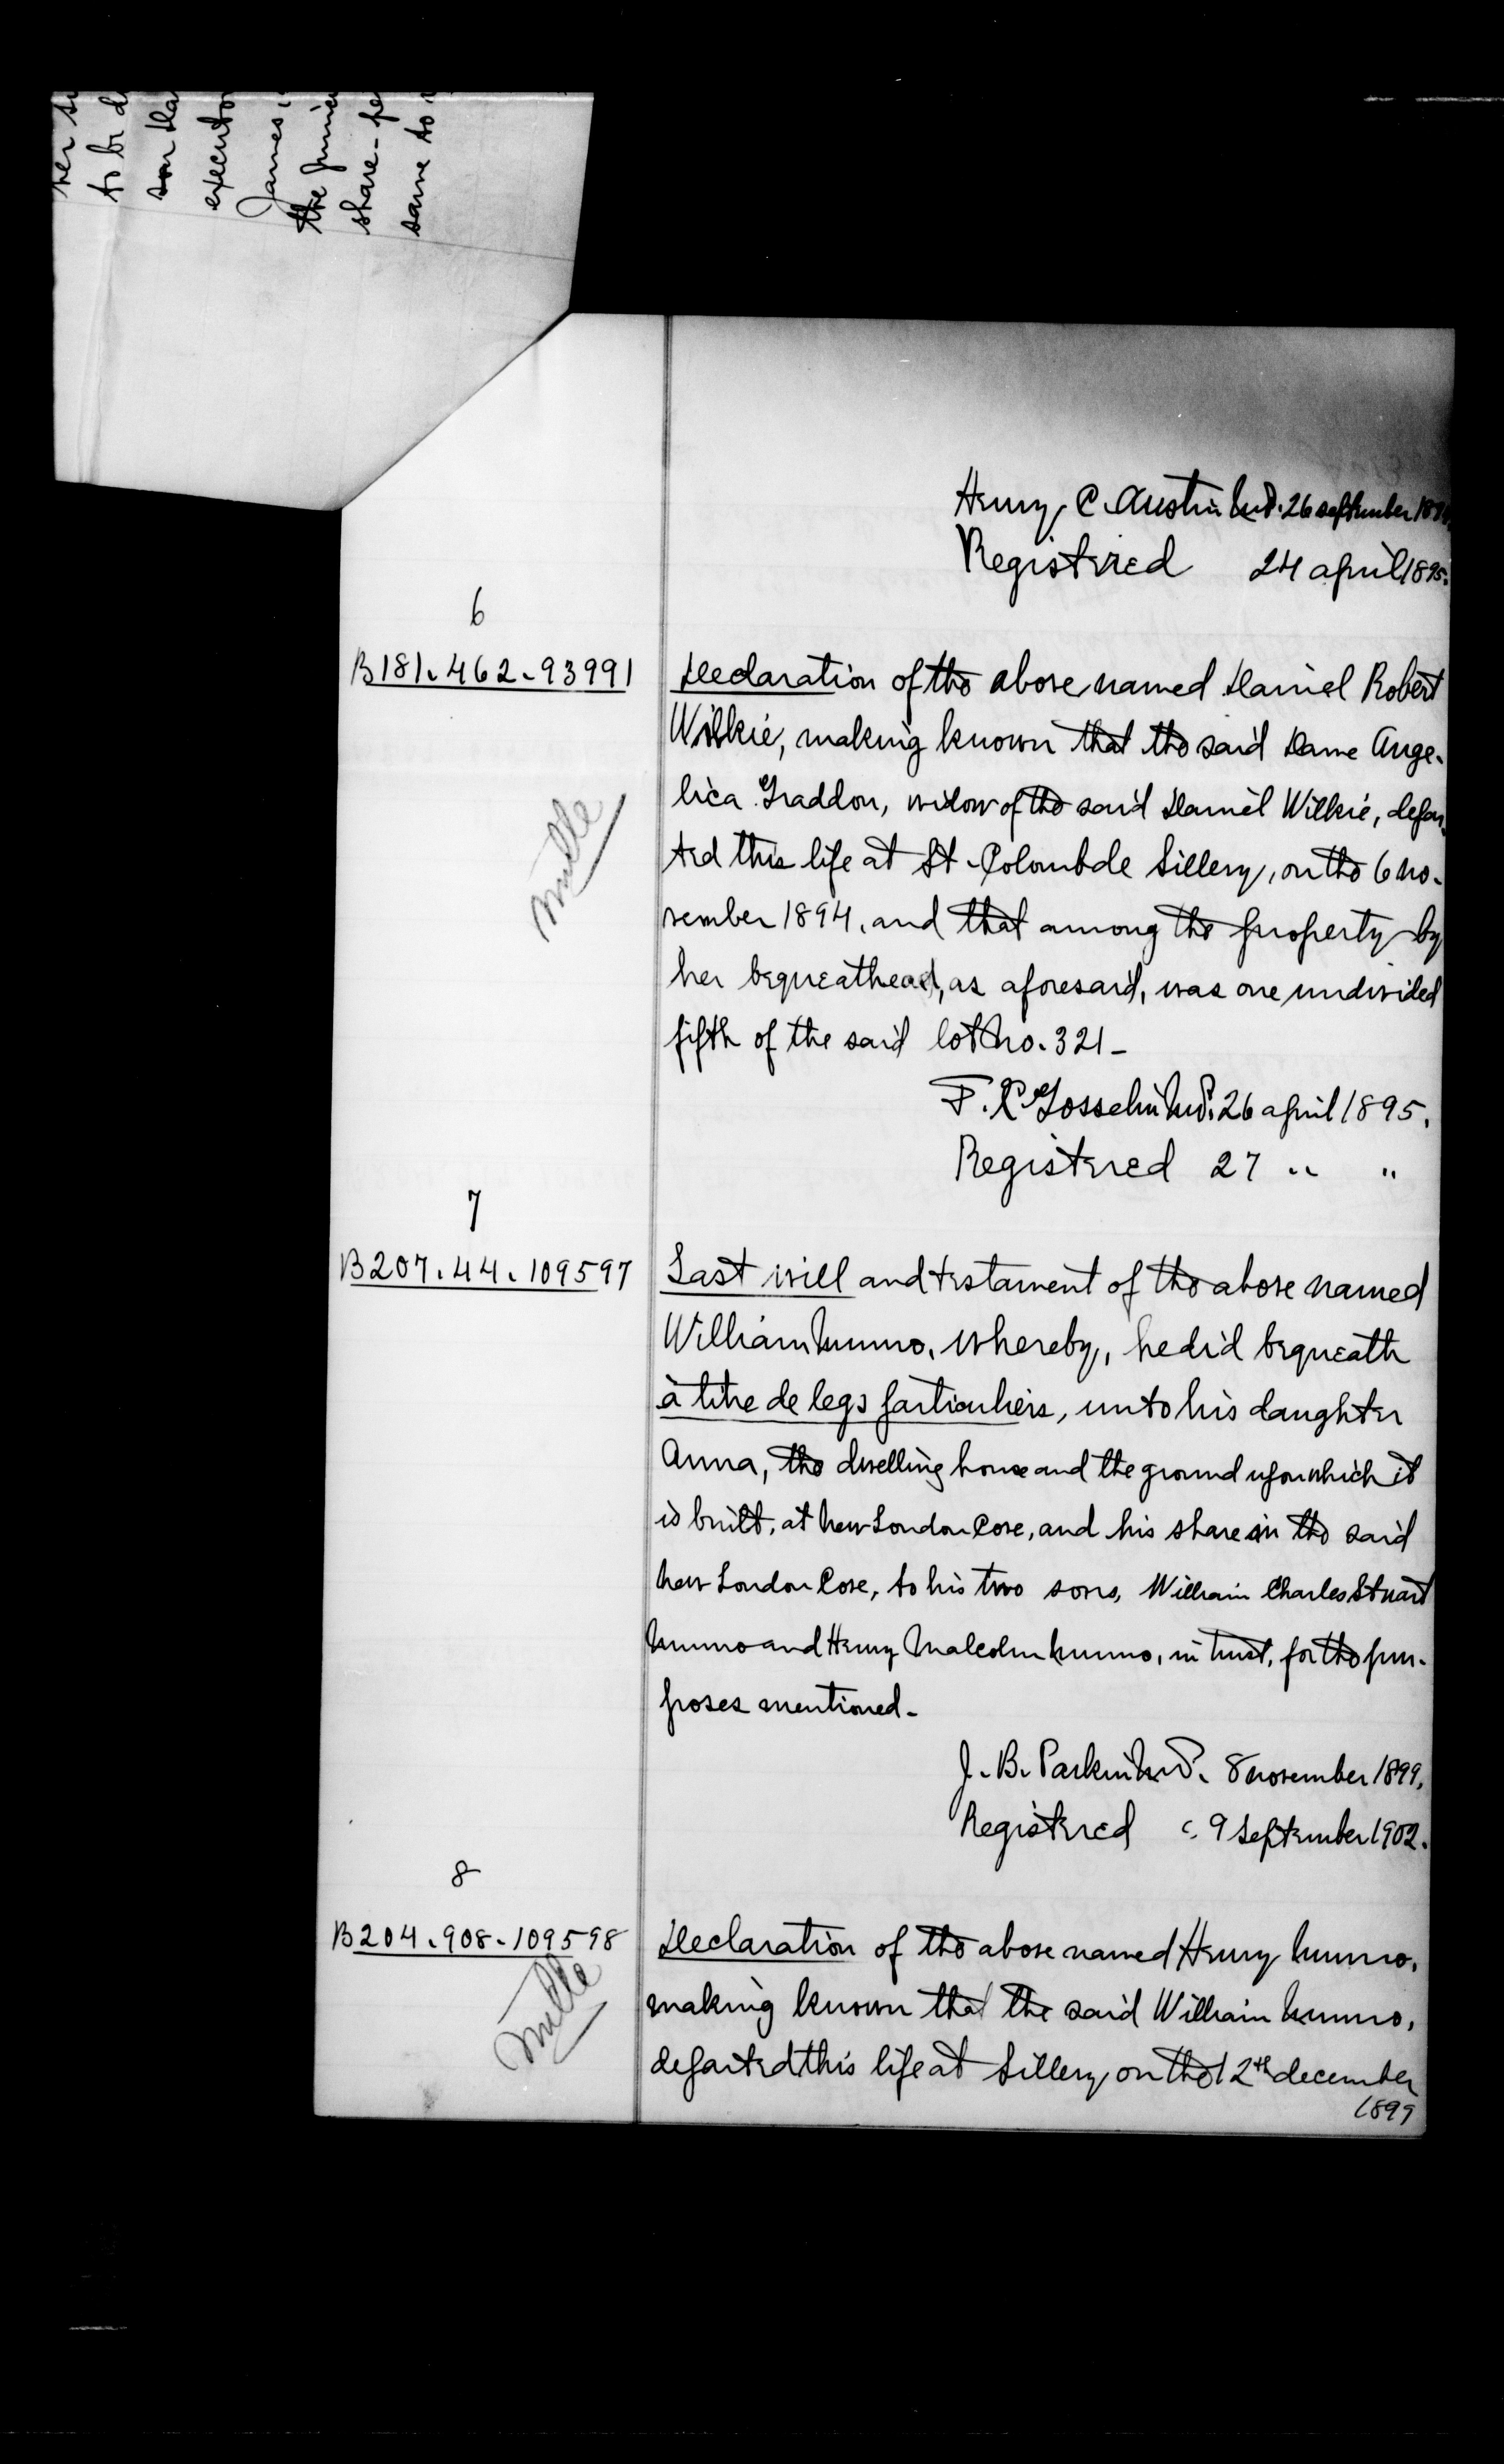 her
to be
son
executo
James
the Junior
share-
same to
Henry C. Austin N.P. 26 september 18
Registered 24 april 1895.
6
B181.462.93991
Declaration of the above named Daniel Robert
Wilkie, making known that the said Dame Ange-
lica Graddon, widow of the said Daniel Wilkie, depar-
ted this life at St-Colomb de Sillery, on the 6 no-
vember 1894, and that among the property by
her bequeathed, as aforesaid, was one undivided
fifth of the said lot No. 321 -
nulle
F. X. Gosselin N.P. 26 april 1895.
Registered 27 " "
7
B207.44.109597
Last will and testament of the above named
William Munro, whereby, he did bequeath
à titre de legs particuliers, unto his daughter
Anna, the dwelling house and the ground upon which it
is built, at New London Cove, and his share in the said
New London Cove, to his two sons, William Charles Stuart
Munro and Henry Malcolm Munro, in trust, for the pur-
poses mentioned -
J. B. Parkin N.P. 8 november 1899.
Registered 9 September 1902.
8
B204.908.109598
Declaration of the above named Henry Munro,
making known that the said William Munro,
departed this life at Sillery, on the 12th december
1899
nulle